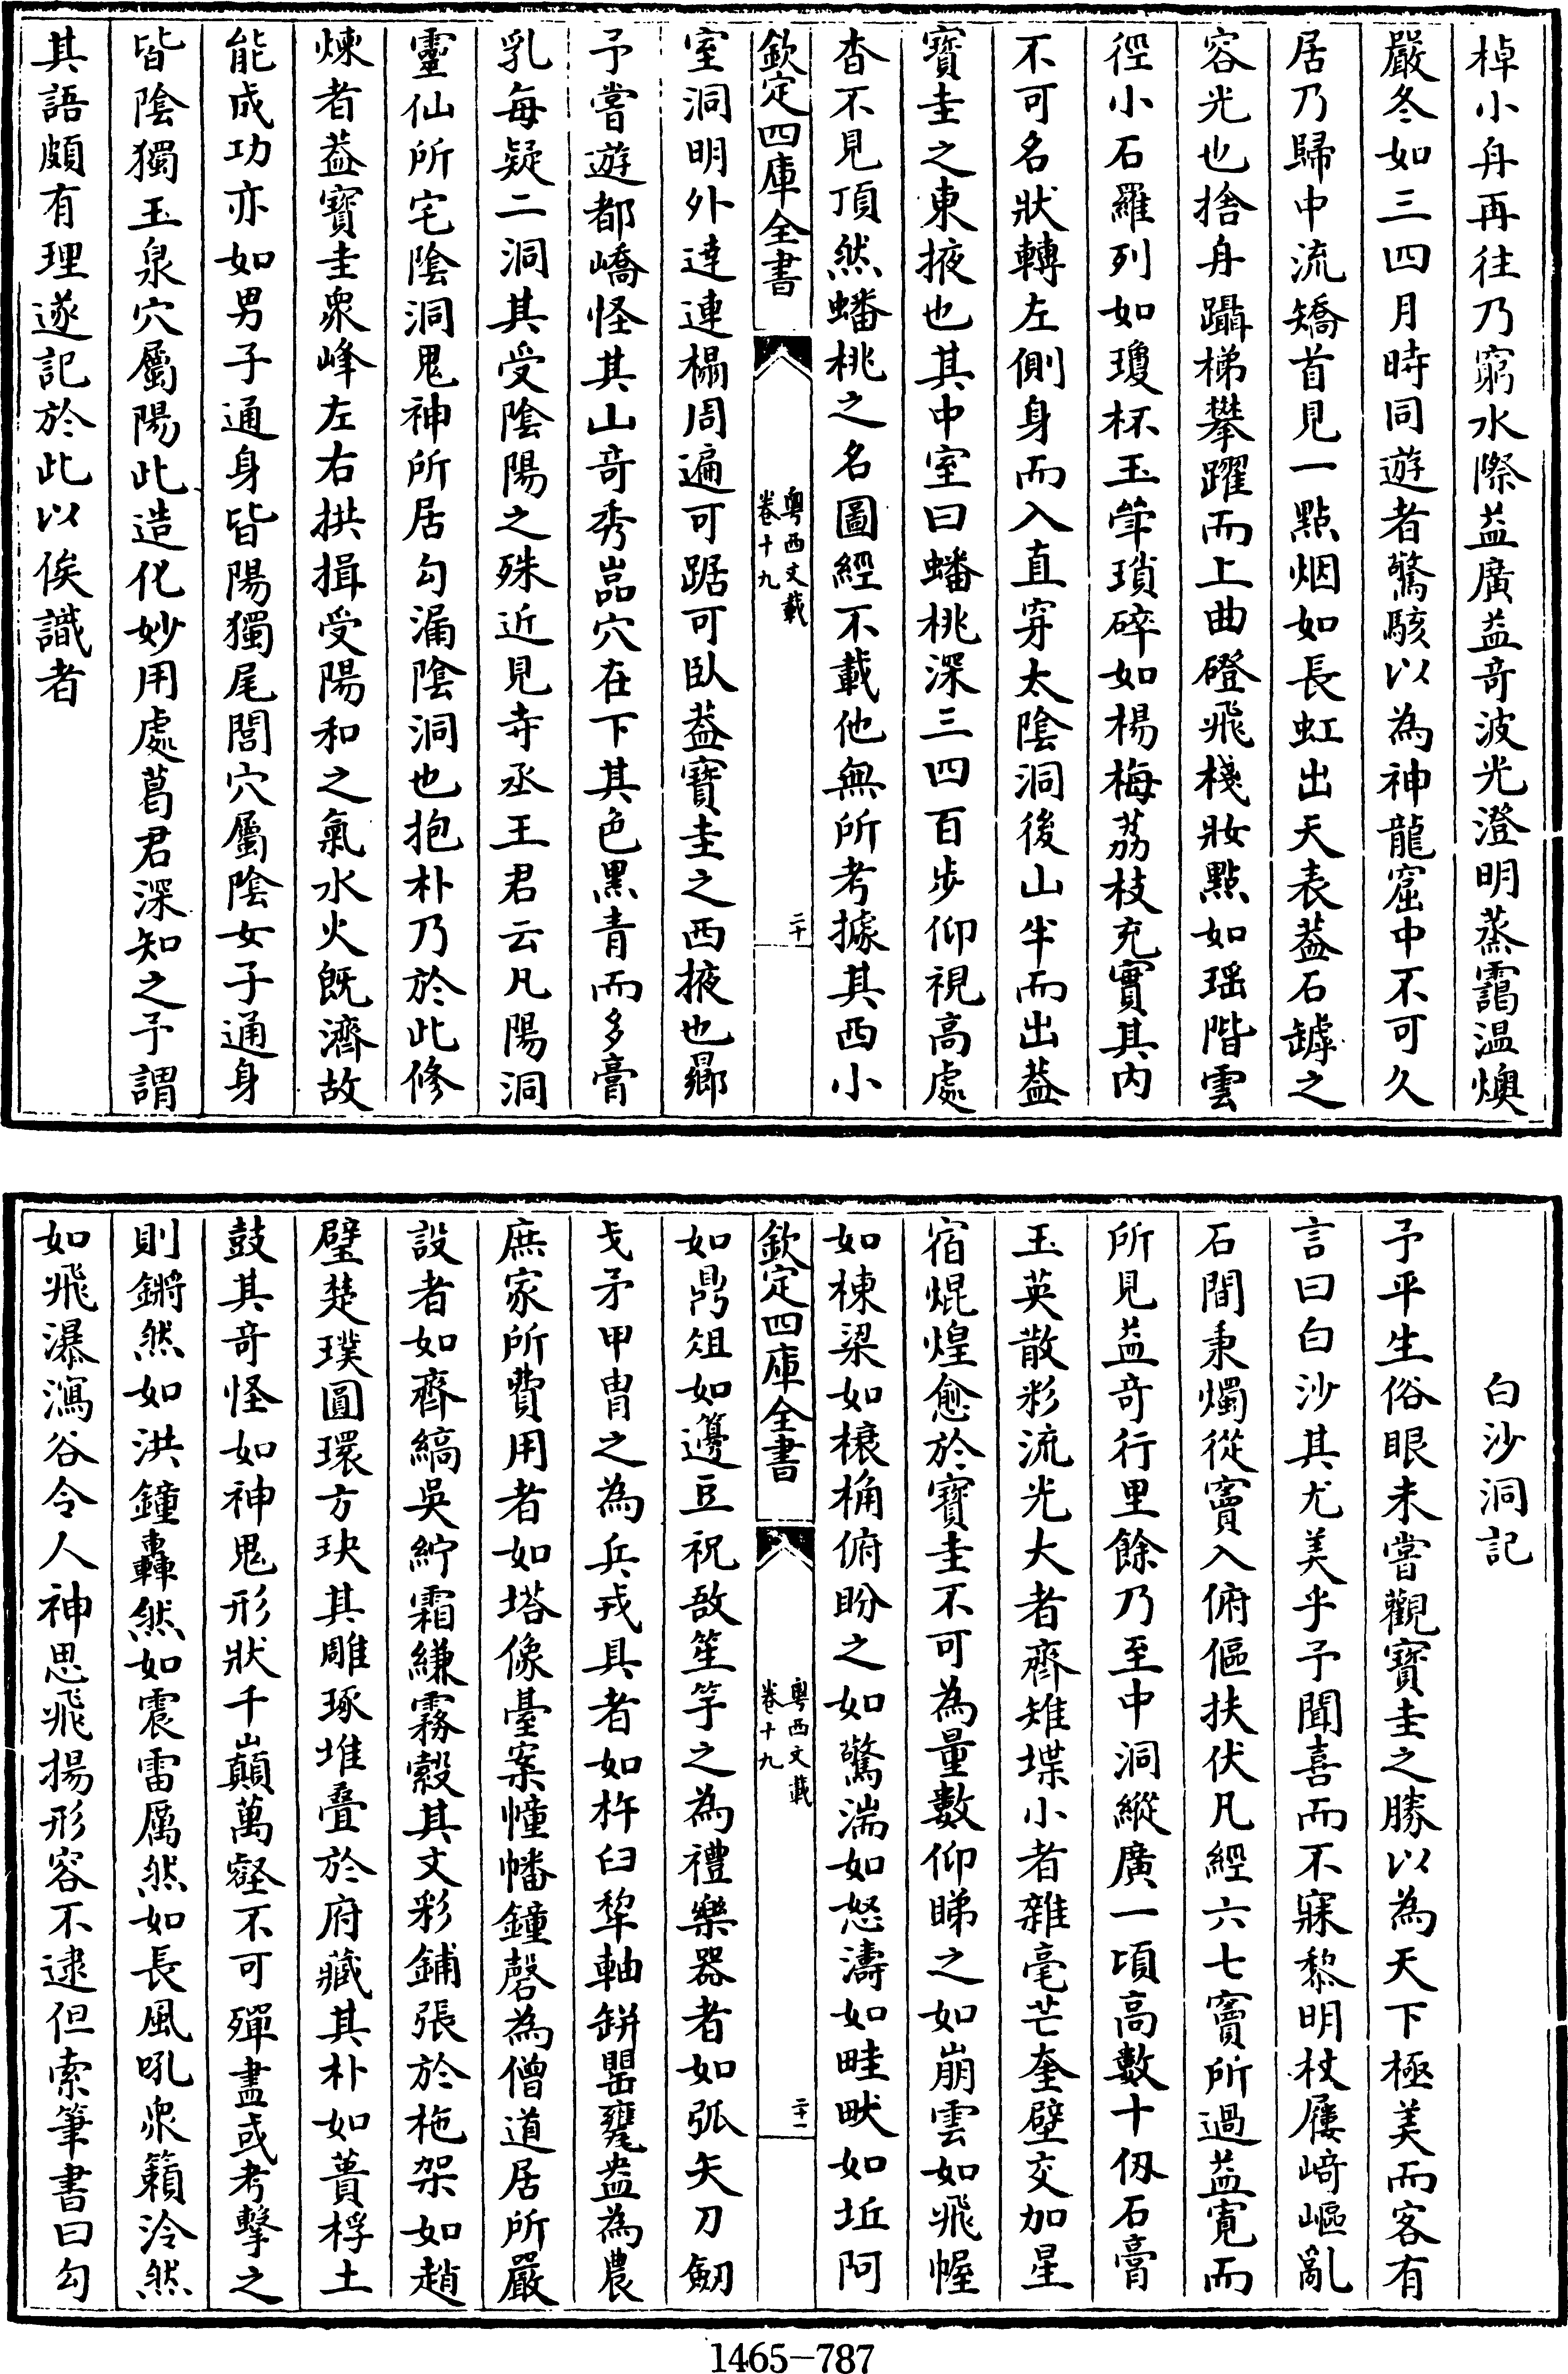 棹小舟再往乃窮水際益廣益奇波光澄明蒸靄温燠
嚴冬如三四月時同遊者驚駭以為神龍窟中不可久
居乃歸中流矯首見一點烟如長虹出天表葢石罅之
容光也捨舟躡梯攀躍而上曲磴飛棧妝點如瑶階雲
徑小石羅列如瓊杯玉斝瑣碎如楊梅荔枝充實其内
不可名狀轉左側身而入直穿太陰洞後山半而出葢
寶圭之東掖也其中室曰蟠桃深三四百步仰視高處
杳不見頂然蟠桃之名圖經不載他無所考據其西小
欽定四庫全書
粤西文載
卷十九
二十
室洞明外達連榻周遍可踞可臥葢寶圭之西掖也鄉
予嘗遊都嶠怪其山奇秀嵓穴在下其色黒青而多膏
乳每疑二洞其受陰陽之殊近見寺丞王君云凡陽洞
靈仙所宅陰洞鬼神所居勾漏陰洞也抱朴乃於此修
煉者葢寶圭衆峰左右拱揖受陽和之氣水火既濟故
能成功亦如男子通身皆陽獨尾閭穴屬陰女子通身
皆陰獨玉泉穴屬陽此造化妙用處葛君深知之予謂
其語頗有理遂記於此以俟識者
白沙洞記
予平生俗眼未嘗觀寶圭之勝以為天下極美而客有
言曰白沙其尤美乎予聞喜而不寐黎明杖屨﨑嶇亂
石間秉燭從竇入俯傴扶伏凡經六七竇所過益寛而
所見益奇行里餘乃至中洞縱廣一頃高數十仭石膏
玉英散彩流光大者齊雉堞小者雜毫芒奎壁交加星
宿焜煌愈於寶圭不可為量數仰睇之如崩雲如飛幄
如棟梁如榱桷俯盼之如驚湍如怒濤如畦畎如坵阿
欽定四庫全書
粤西文載
卷十九
二十一
如鼎俎如籩豆祝敔笙竽之為禮樂器者如弧矢刀劒
戈矛甲胄之為兵戎具者如杵臼犂軸缾罌甕盎為農
庶家所費用者如塔像臺案幢幡鐘磬為僧道居所嚴
設者如齊縞吳紵霜縑霧縠其文彩鋪張於柂架如趙
璧楚璞圓環方玦其雕琢堆叠於府藏其朴如蕢桴土
鼓其奇怪如神鬼形狀千巔萬壑不可殫盡或考擊之
則鏘然如洪鐘轟然如震雷厲然如長風吼衆籟泠然
如飛瀑瀉谷令人神思飛揚形容不逮但索筆書曰勾
1465-787